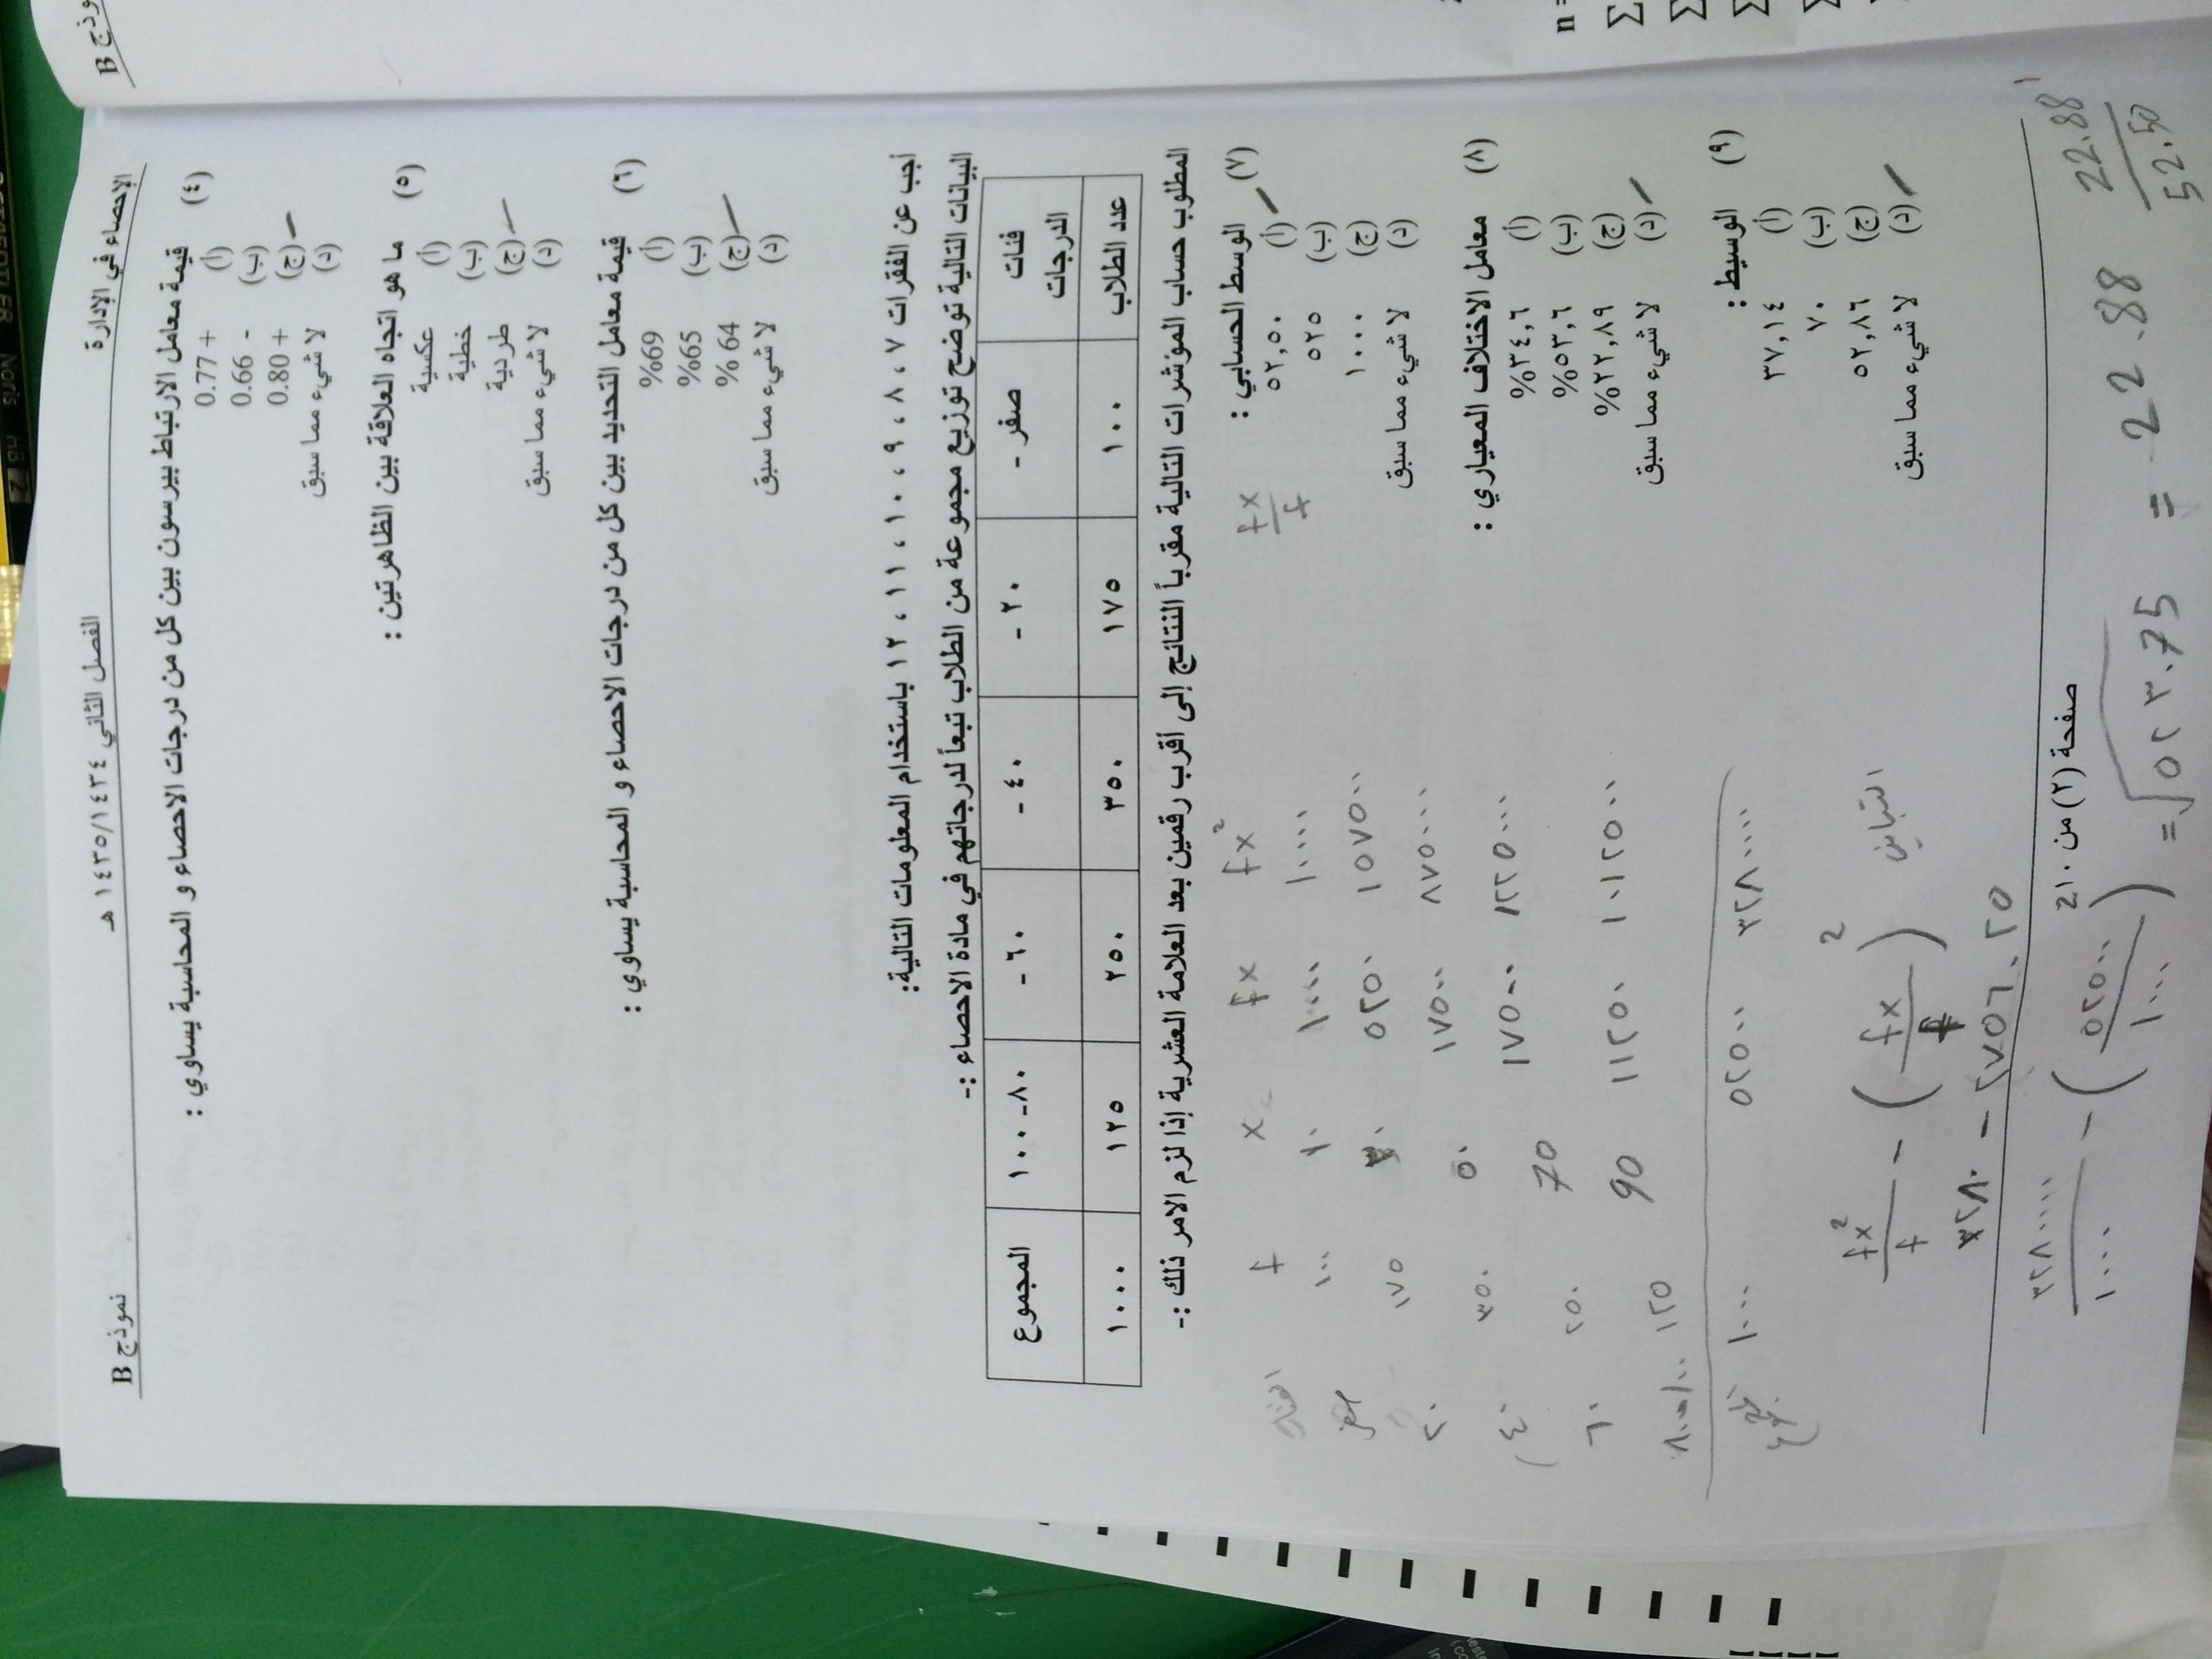 الإحصاء في الإدارة الفصل الثاني ١٤٣٥/١٤٣٤ هـ نموذج B
(٤) قيمة معامل الارتباط بيرسون بين كل من درجات الاحصاء و المحاسبة يساوي :
(أ) 0.77 +
(ب) 0.66 -
(ج) 0.80 +
(د) لا شيء مما سبق
(٥) ما هو اتجاه العلاقة بين الظاهرتين :
(أ) عكسية
(ب) خطية
(ج) طردية
(د) لا شيء مما سبق
(٦) قيمة معامل التحديد بين كل من درجات الاحصاء و المحاسبة يساوي :
(أ) %69
(ب) %65
(ج) % 64
(د) لا شيء مما سبق
أجب عن الفقرات ٧ ، ٨ ، ٩ ، ١٠ ، ١١ ، ١٢ باستخدام المعلومات التالية:
البيانات التالية توضح توزيع مجموعة من الطلاب تبعاً لدرجاتهم في مادة الاحصاء :-
فئات الدرجات صفر - ٢٠ - ٤٠ - ٦٠ - ٨٠-١٠٠ المجموع
عدد الطلاب ١٠٠ ١٧٥ ٣٥٠ ٢٥٠ ١٢٥ ١٠٠٠
المطلوب حساب المؤشرات التالية مقرباً النتائج إلى أقرب رقمين بعد العلامة العشرية إذا لزم الامر ذلك :-
(٧) الوسط الحسابي :
(أ) ٥٢,٥٠
(ب) ٥٢٥
(ج) ١٠٠٠
(د) لا شيء مما سبق
fx/f
(٨) معامل الاختلاف المعياري :
(أ) ٣٤,٦%
(ب) ٥٣,٦%
(ج) ٢٢,٨٩%
(د) لا شيء مما سبق
(٩) الوسيط :
(أ) ٣٧,١٤
(ب) ٧٠
(ج) ٥٢,٨٦
(د) لا شيء مما سبق
f x fx fx²
صفر ١٠٠ ١٠ ١٠٠٠ ١٠٠٠٠
٢٠ ١٧٥ ٣٠ ٥٢٥٠ ١٥٧٥٠٠
٤٠ ٣٥٠ ٥٠ ١٧٥٠٠ ٨٧٥٠٠٠
٦٠ ٢٥٠ 70 ١٧٥٠٠ ١٢٢٥٠٠٠
٨٠-١٠٠ ١٢٥ 90 ١١٢٥٠ ١٠١٢٥٠٠
١٠٠٠ ٥٢٥٠٠ ٣٢٨٠٠٠٠
fx²/f - (fx/f)² التباين
٣٢٨٠ - ٢٧٥٦.٢٥
صفحة (٢) من ١٠
٣٢٨٠٠٠٠/١٠٠٠ - (٥٢٥٠٠/١٠٠٠)² = √٥٢٣.75 = 22.88
22.88/52.50
نموذج B
n =
Σ
Σ
Σ
Σ